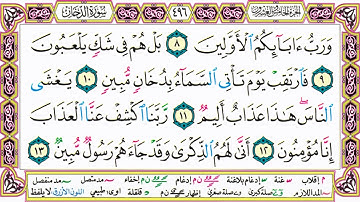 سُورَةُ الدُّخَانِ ٤٩٦ الجُزءُ الخَامِسُ وَالعِشرُونَ
وَرَبُّ ءَابَآئِكُمُ ٱلۡأَوَّلِينَ ٨ بَلۡ هُمۡ فِي شَكّٖ يَلۡعَبُونَ
٩ فَٱرۡتَقِبۡ يَوۡمَ تَأۡتِي ٱلسَّمَآءُ بِدُخَانٖ مُّبِينٖ ١٠ يَغۡشَى
ٱلنَّاسَۖ هَٰذَا عَذَابٌ أَلِيمٞ ١١ رَّبَّنَا ٱكۡشِفۡ عَنَّا ٱلۡعَذَابَ
إِنَّا مُؤۡمِنُونَ ١٢ أَنَّىٰ لَهُمُ ٱلذِّكۡرَىٰ وَقَدۡ جَآءَهُمۡ رَسُولٞ مُّبِينٞ ١٣